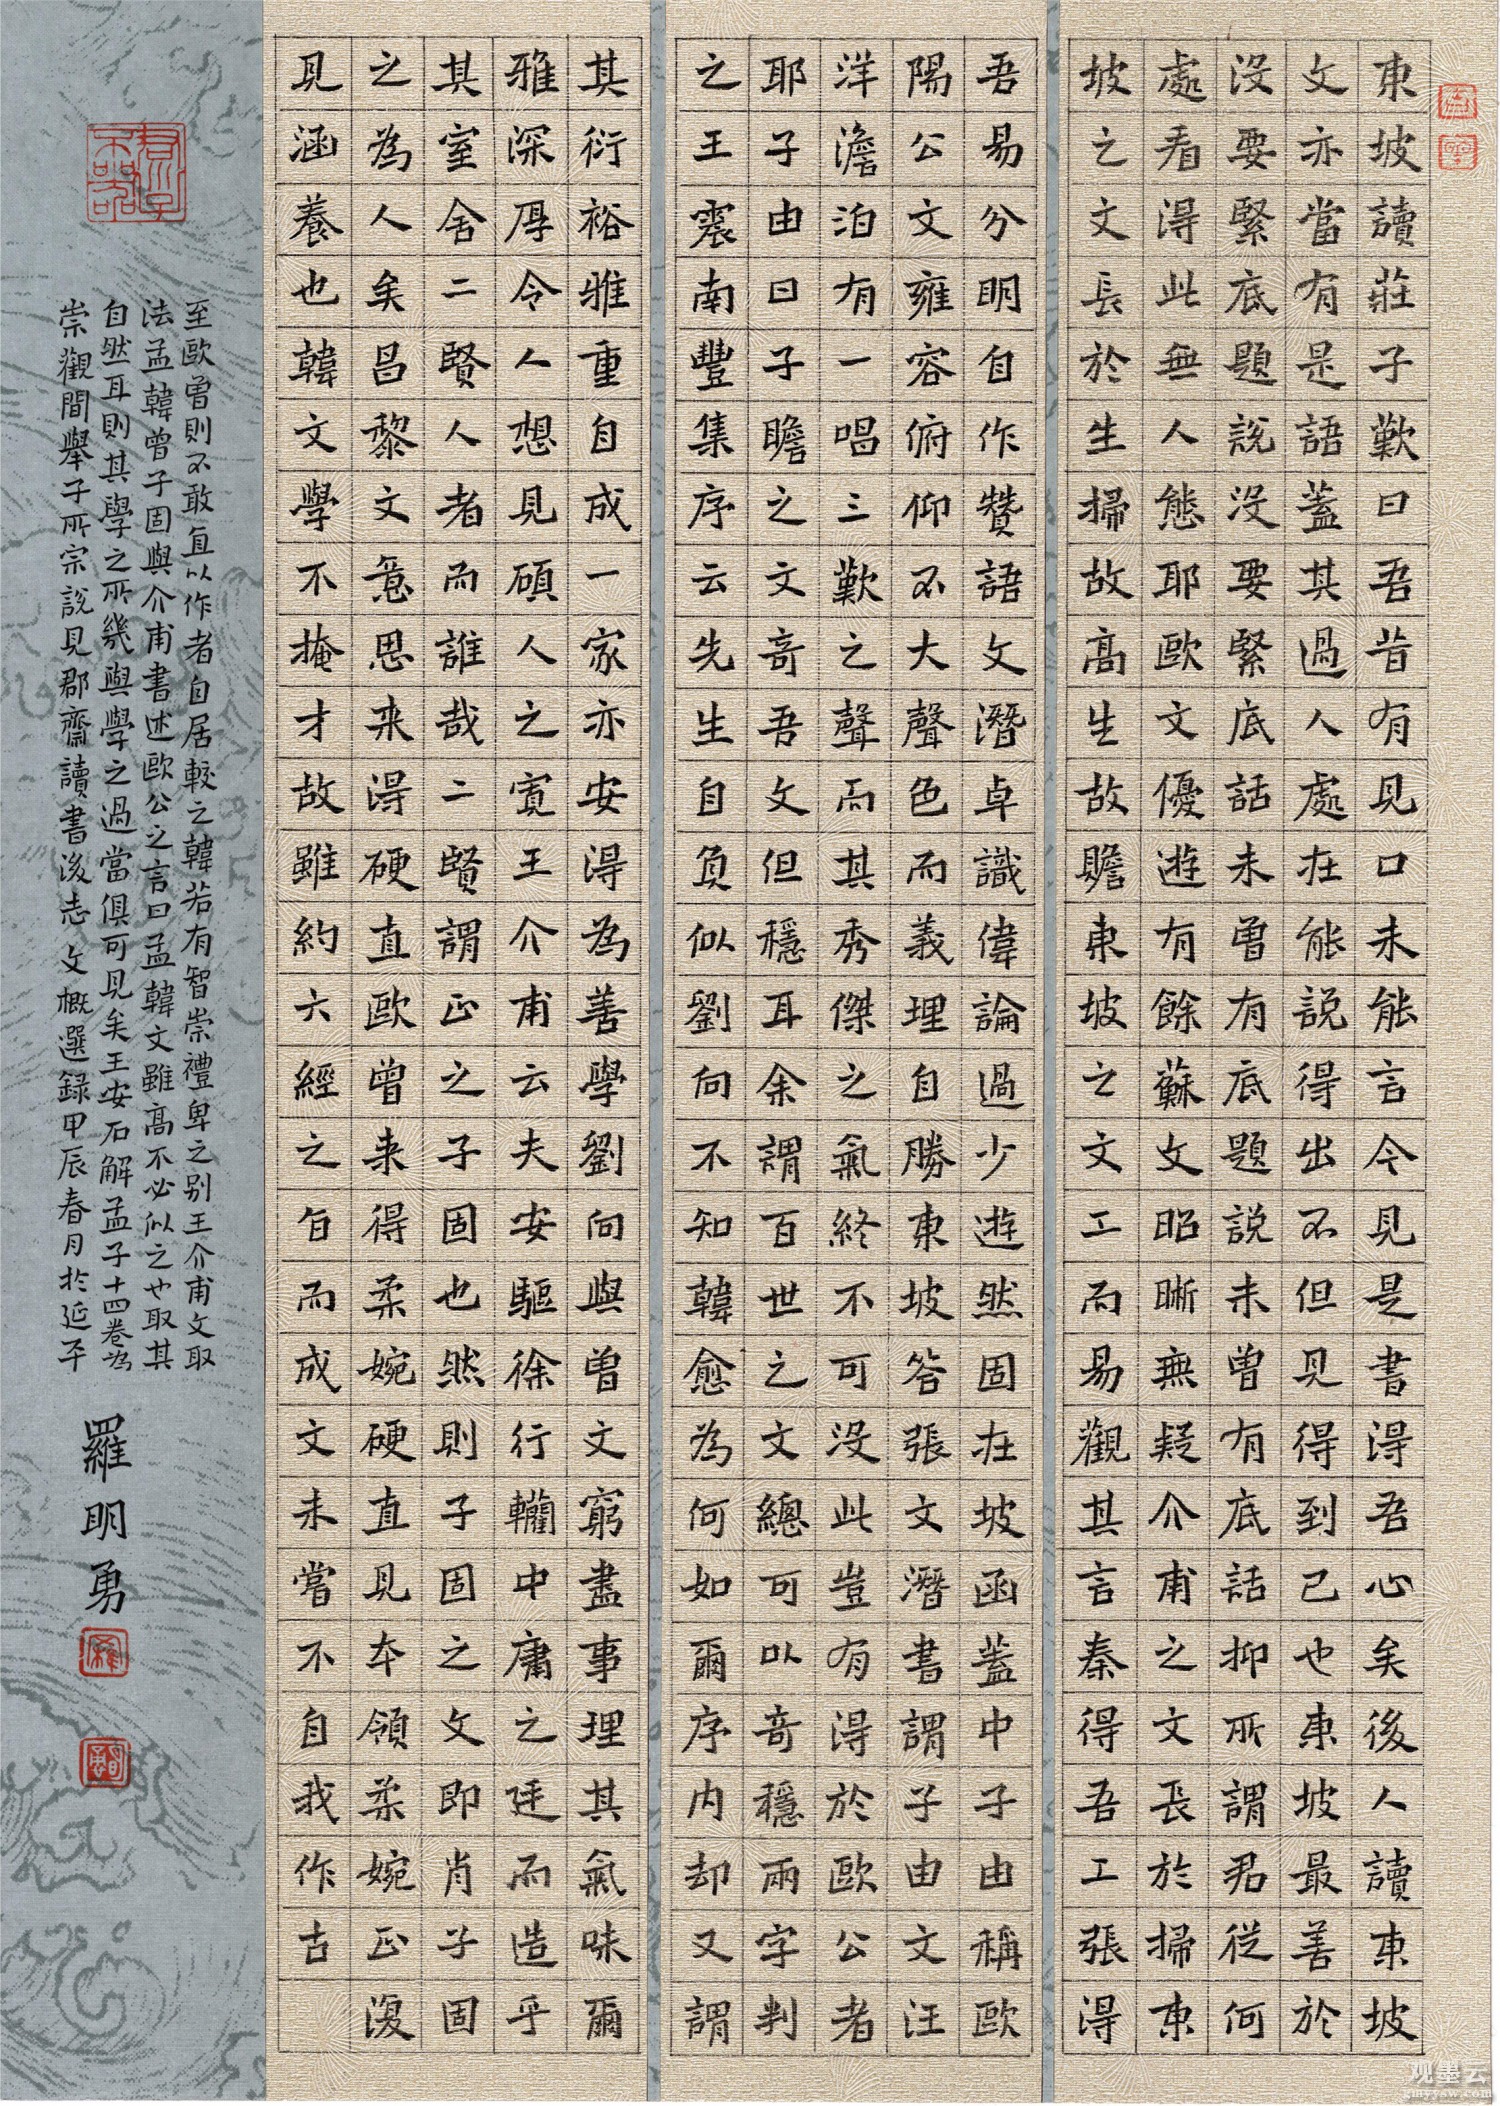 東坡讀莊子歎曰吾昔有見口未能言今見是書得吾心矣後人讀東坡
文亦當有是語蓋其過人處在能說得出不但見得到已也東坡最善於
没要緊底題説没要緊底話未曾有底題説未曾有底話抑所謂君從何
處看得此無人態耶歐文優遊有餘蘇文昭晰無疑介甫之文長於掃東
坡之文長於生掃故高生故贍東坡之文工而易觀其言秦得吾工張得
吾易分明自作贊語文潛卓識偉論過少遊然固在坡函蓋中子由稱歐
陽公文雍容俯仰不大聲色而義理自勝東坡答張文潛書謂子由文汪
洋澹泊有一唱三歎之聲而其秀傑之氣終不可没此豈有得於歐公者
耶子由曰子瞻之文奇吾文但穩耳余謂百世之文總可以奇穩兩字判
之王震南豐集序云先生自負似劉向不知韓愈為何如爾序内却又謂
其衍裕雅重自成一家亦安得為善學劉向與曾文窮盡事理其氣味爾
雅深厚令人想見碩人之寬王介甫云夫安驅徐行轥中庸之廷而造乎
其室舍二賢人者而誰哉二賢謂正之子固也然則子固之文即肖子固
之為人矣昌黎文意思来得硬直歐曾来得柔婉硬直見本領柔婉正復
見涵養也韓文學不掩才故雖約六經之旨而成文未嘗不自我作古
至歐曾則不敢直以作者自居較之韓若有智崇禮卑之别王介甫文取
法孟韓曾子固與介甫書述歐公之言曰孟韓文雖高不必似之也取其
自然耳則其學之所幾與學之過當俱可見矣王安石解孟子十四卷為
崇觀間舉子所宗說見郡齋讀書後志 文概選録甲辰春月於延平
羅明勇
君子不器
观墨云
gmyysw.com